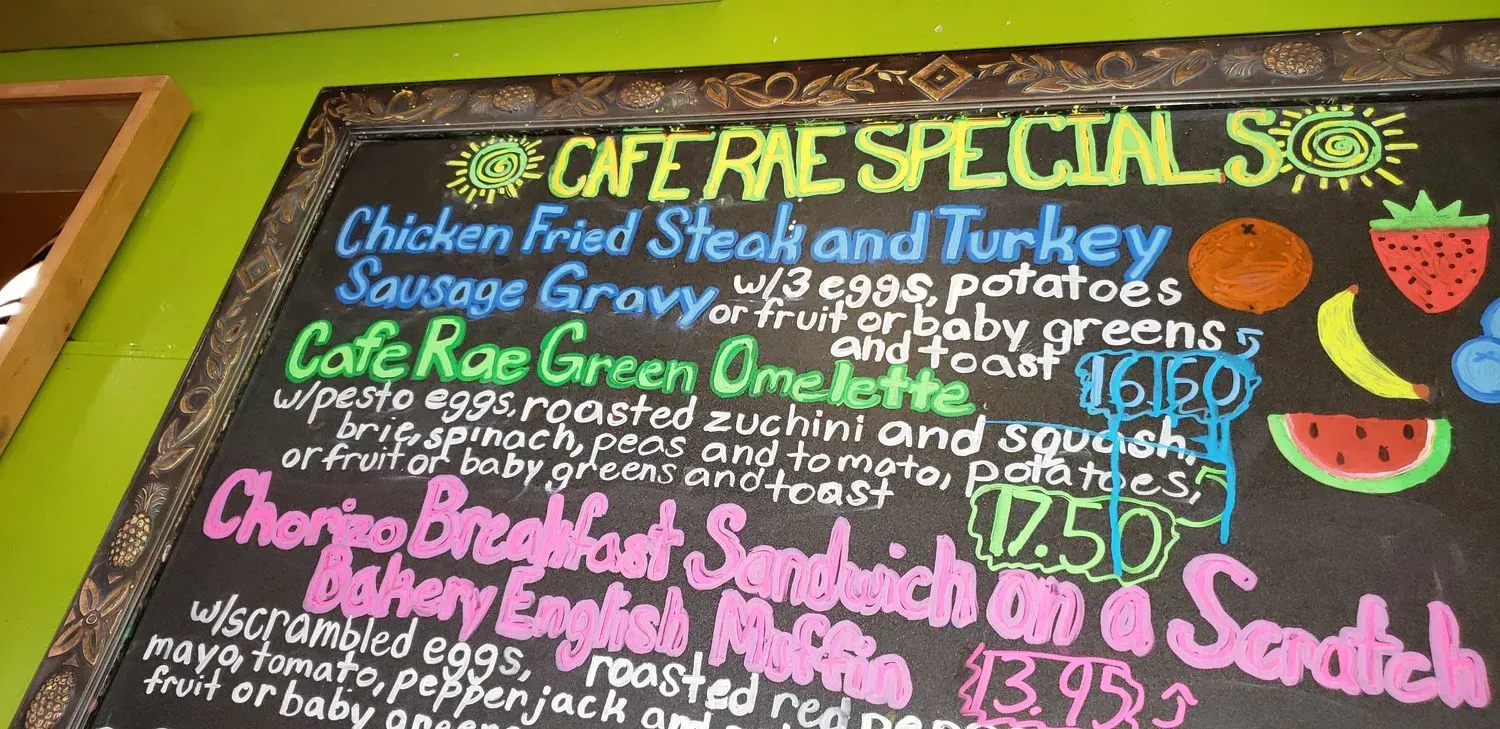 CAFE RAE SPECIALS
Chicken Fried Steak and Turkey
Sausage Gravy w/3 eggs, potatoes
or fruit or baby greens
and toast 16.50
Cafe Rae Green Omelette
w/pesto eggs, roasted zuchini and squash,
brie, spinach, peas and tomato, potatoes,
or fruit or baby greens and toast
17.50
Chorizo Breakfast Sandwich on a Scratch
Bakery English Muffin
w/scrambled eggs, roasted red
mayo, tomato, pepperjack and
fruit or baby greens
13.95